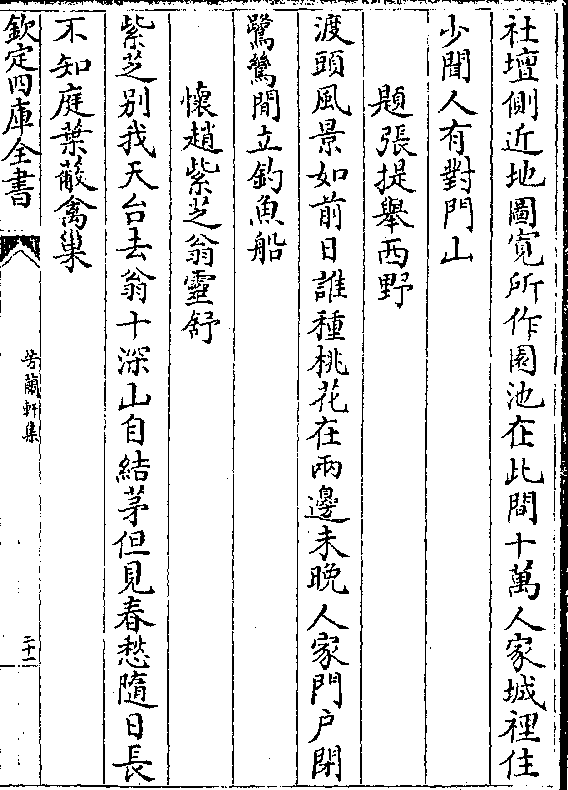 社壇側近地圖寛所作園池在此間十萬人家城裡住
少聞人有對門山
題張提舉西野
渡頭風景如前日誰種桃花在兩邊未晩人家門户閉
鷺鷥閒立釣魚船
懷趙紫芝翁靈舒
紫芝别我天台去翁十深山自結茅但見春愁隨日長
不知庭葉蔽禽巢
欽定四庫全書
芳蘭軒集
二十二